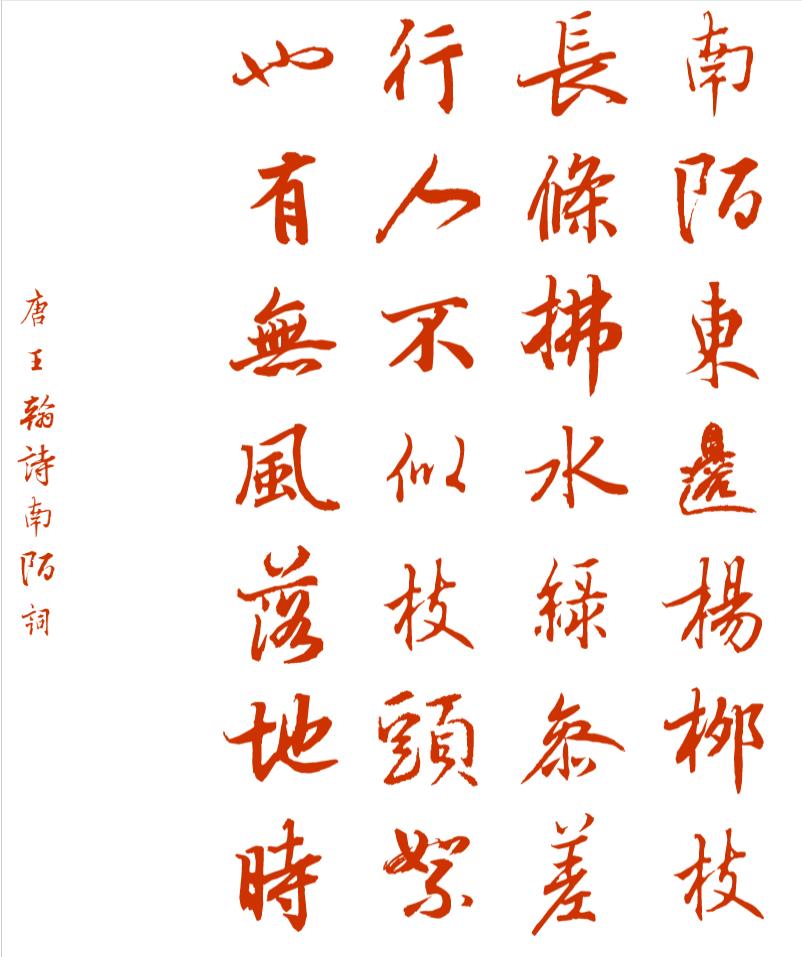 南陌東邊楊柳枝
長條拂水綠參差
行人不似枝頭絮
也有無風落地時
唐王翰詩南陌詞